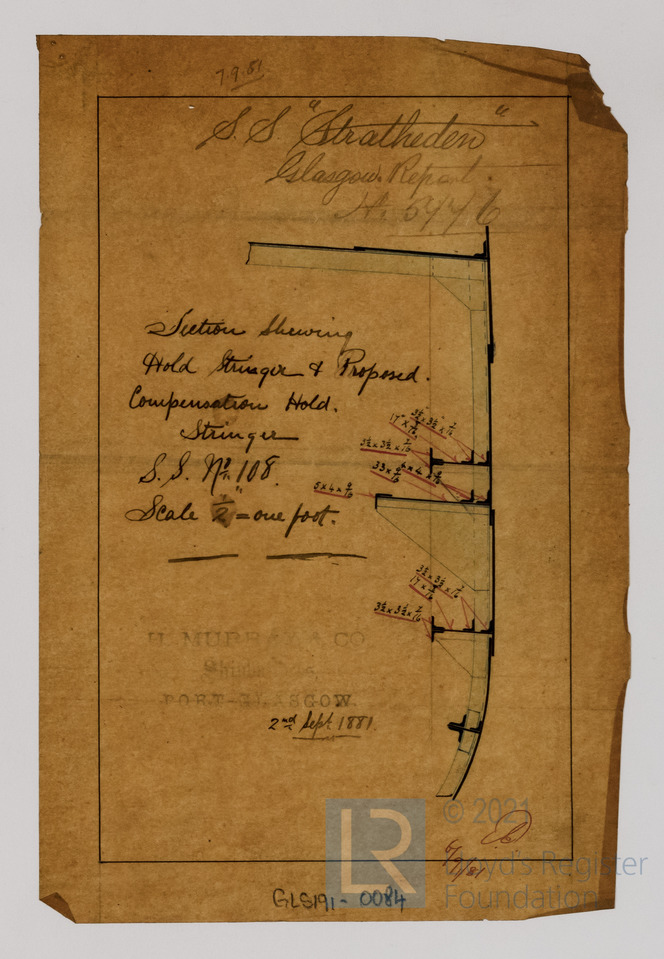 7.9.81
S. S. "Stratheden"
Glasgow. Report.
No. 5446
Section Shewing
Hold Stringer & Proposed.
Compensation Hold.
Stringer
S. S. No. 108.
Scale 1/2" = one foot.
3½ × 3½ × 7/16
17 × 7/16
3½ × 3½ × 7/16
6 × 4 × 9/16
5 × 4 × 9/16
3½ × 3½ × 7/16
17 × 7/16
3½ × 3½ × 7/16
H. MURRAY & CO
PORT-GLASGOW.
2nd Sept 1881.
© 2021
Lloyd's Register
Foundation
LR
6/9/81
GLS191-0084